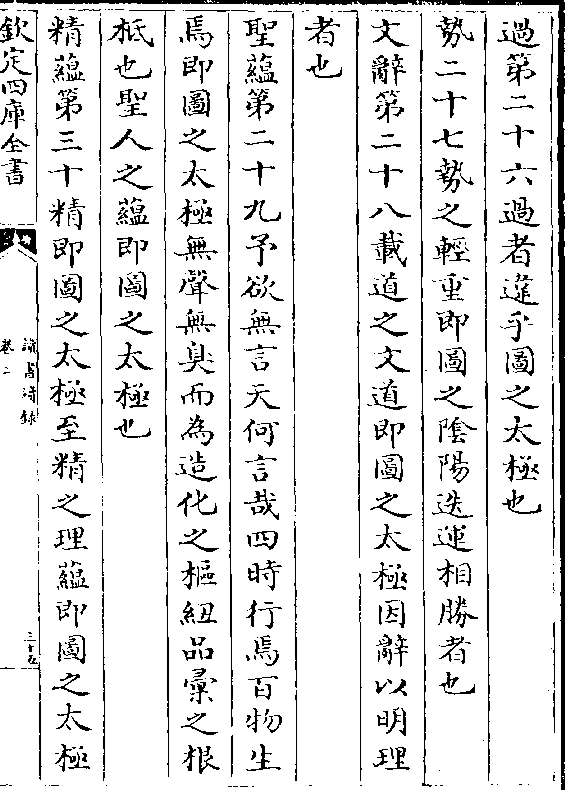 過第二十六過者違乎圖之太極也
勢二十七勢之輕重即圖之陰陽迭運相勝者也
文辭第二十八載道之文道即圖之太極因辭以明理
者也
聖藴第二十九予欲無言天何言哉四時行焉百物生
焉即圖之太極無聲無臭而為造化之樞紐品彚之根
柢也聖人之藴即圖之太極也
精藴第三十精即圖之太極至精之理藴即圖之太極
欽定四庫全書
讀書續録
卷二
三十五